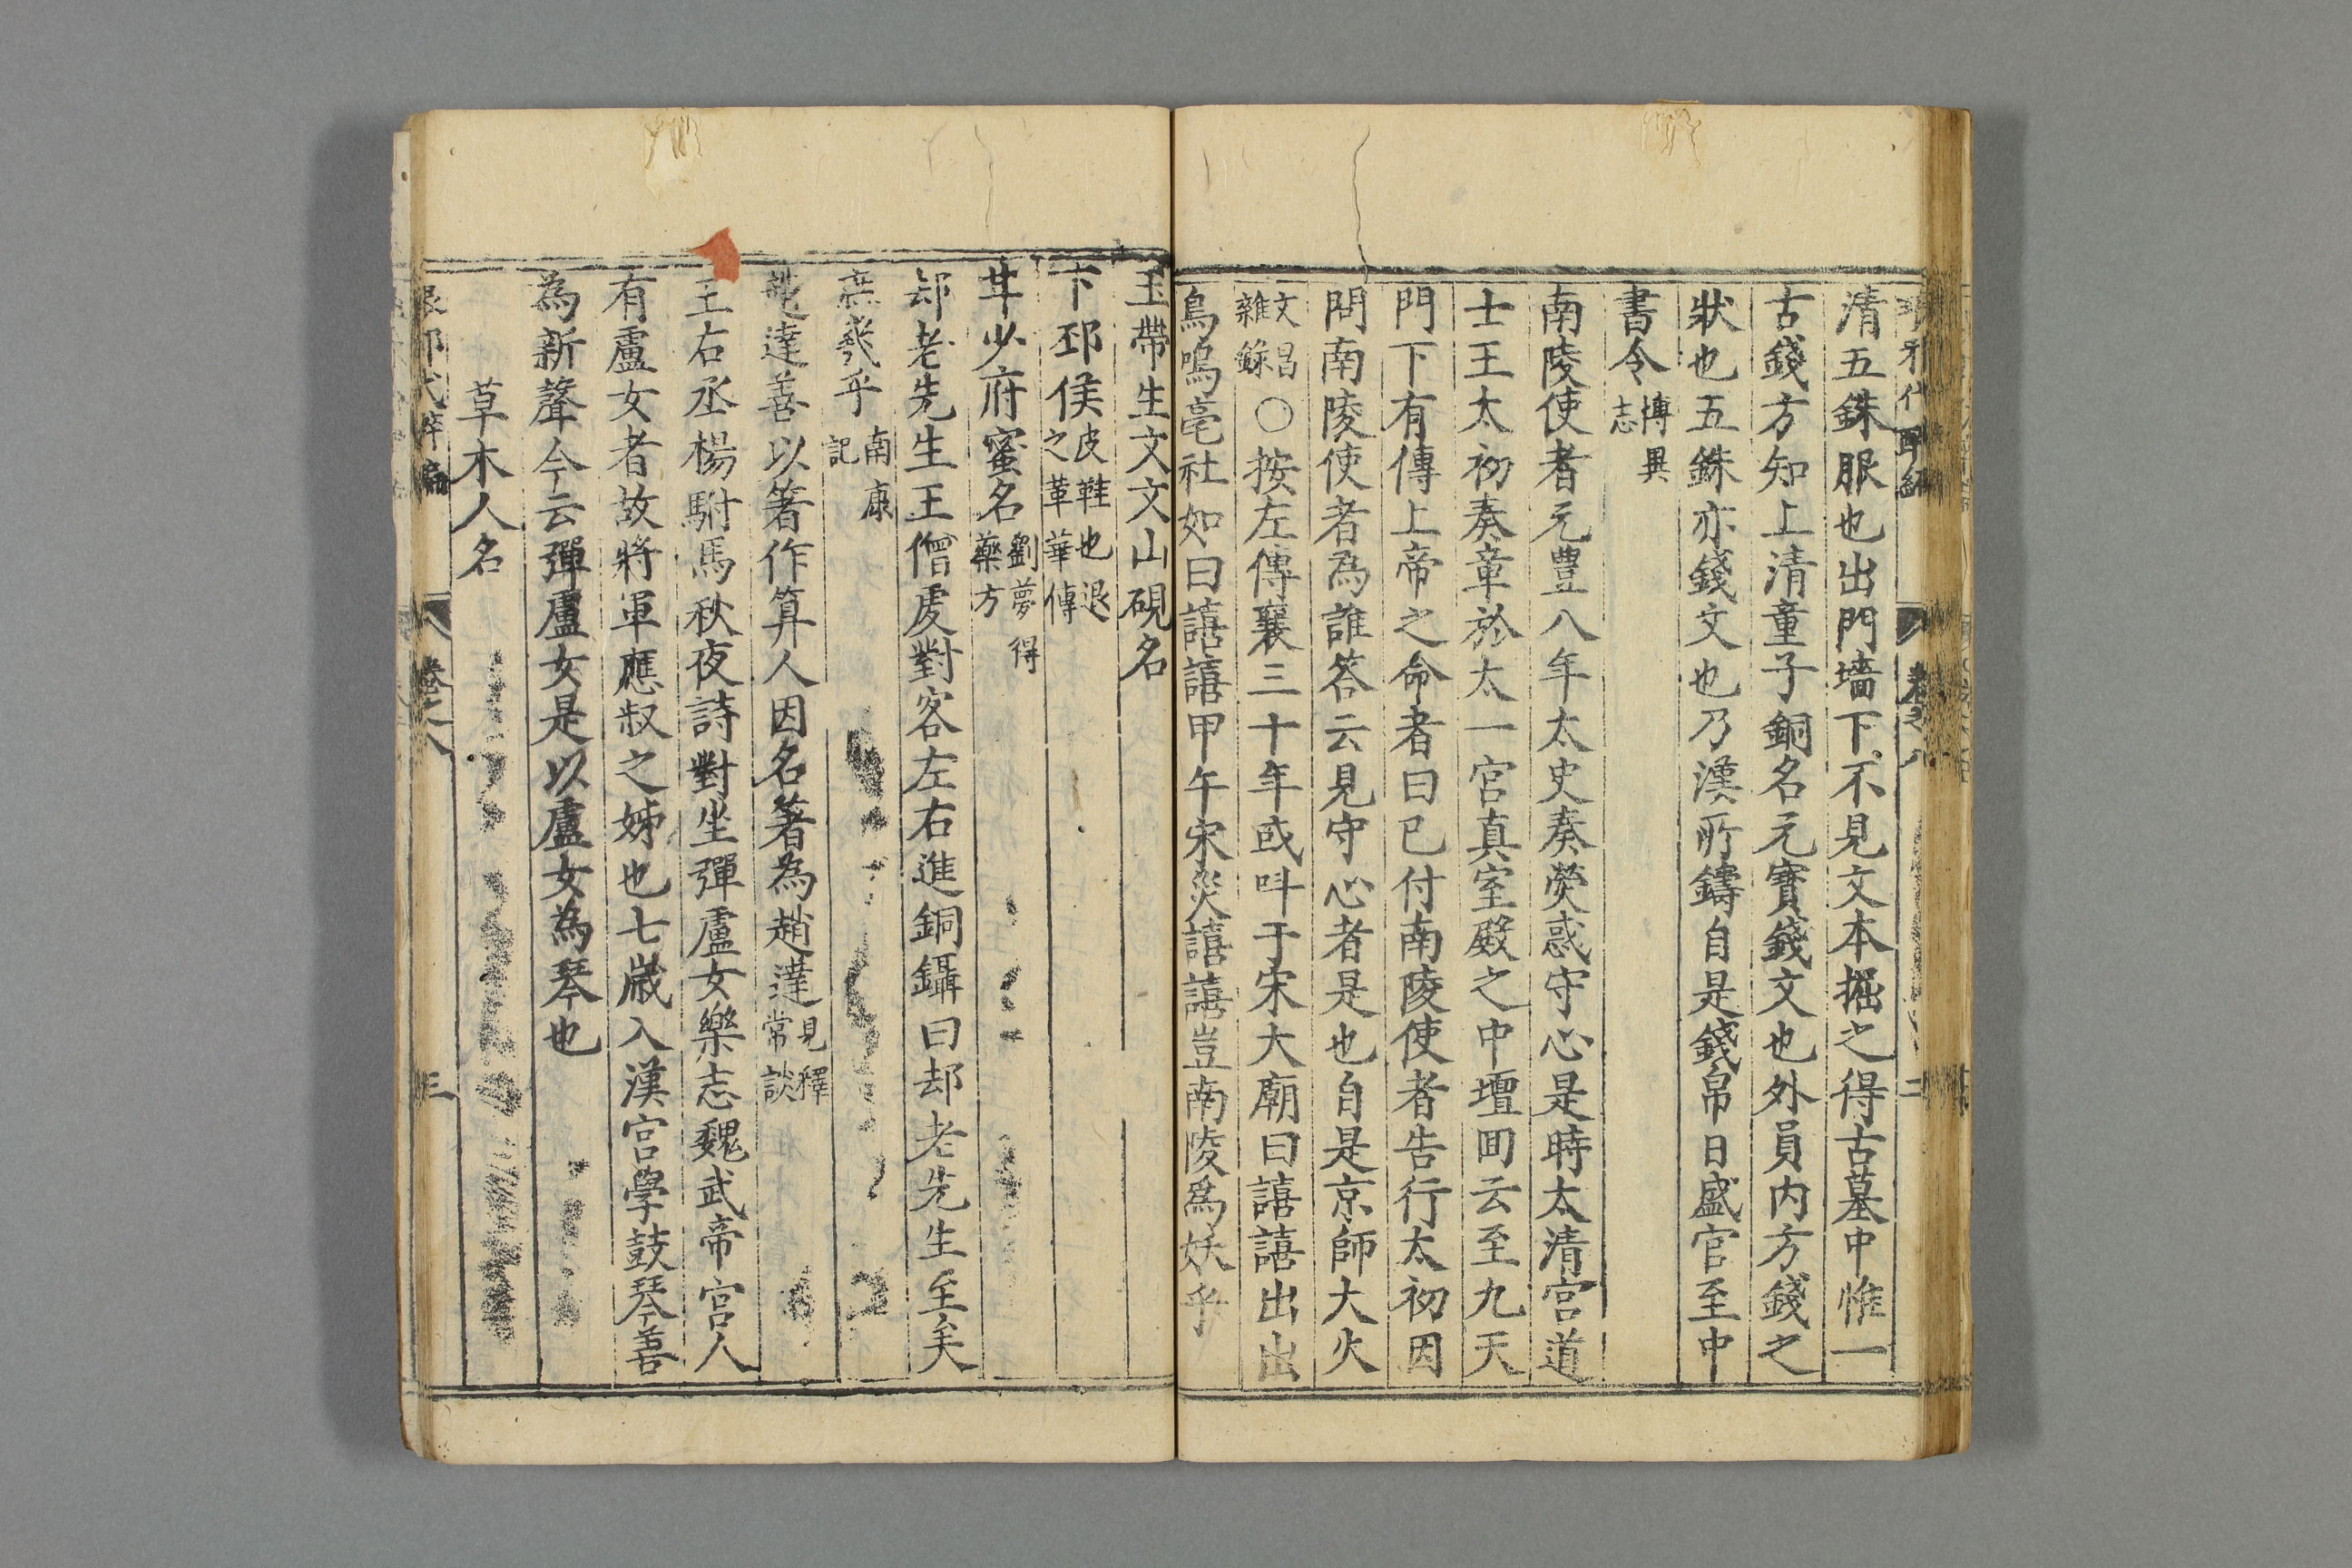 卷之八
二
清五銖服也出門墻下不見文本掘之得古墓中惟一
古錢方知上清童子銅名元寶錢文也外員内方錢之
狀也五銖亦錢文也乃漢所鑄自是錢帛日盛官至中
書令博異志
南陵使者元豊八年太史奏熒惑守心是時太清宮道
士王太初奏章於太一宮真室殿之中壇囬云至九天
門下有傳上帝之命者曰已付南陵使者告行太初因
問南陵使者為誰答云見守心者是也自是京師大火
文昌雜錄○按左傳襄三十年或呌于宋大廟曰譆譆出出
鳥鳴亳社如曰譆譆甲午宋災譆譆豈南陵爲妖乎
玉帶生文文山硯名
下邳侯皮鞋也退之革華傳
苷少府蜜名劉夢得藥方
却老先生王僧虔對客左右進銅鑷曰却老先生至矣
庶幾乎南康記
達善以箸作算人因名箸為趙達見釋常談
王右丞楊駙馬秋夜詩對坐彈盧女樂志魏武帝宮人
有盧女者故將軍應叔之姊也七歲入漢宮學鼓琴善
為新聲今云彈盧女是以盧女為琴也
草木人名
卷之八
三